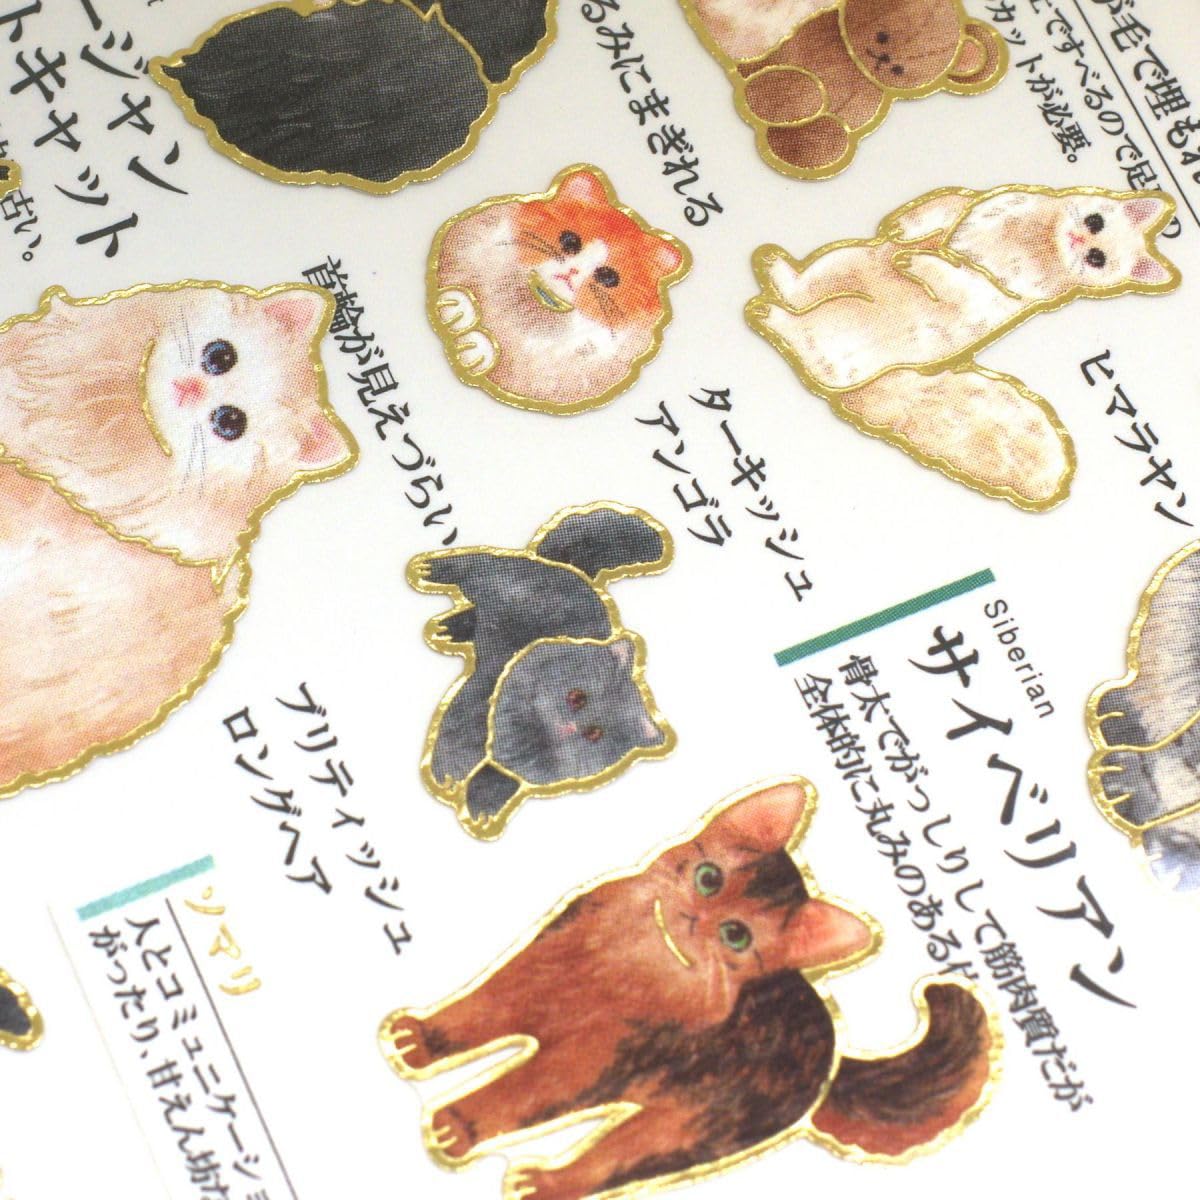 ージャン
トキャット
古い。
るみにまぎれる
が毛で埋もれ
ですべるので足
カットが必要。
首輪が見えづらい
ターキッシュ
アンゴラ
ヒマラヤン
Siberian
サイベリアン
骨太でがっしりして筋肉質だが
全体的に丸みのある
ブリティッシュ
ロングヘア
ソマリ
人とコミュニケーシ
がったり、甘えん坊な